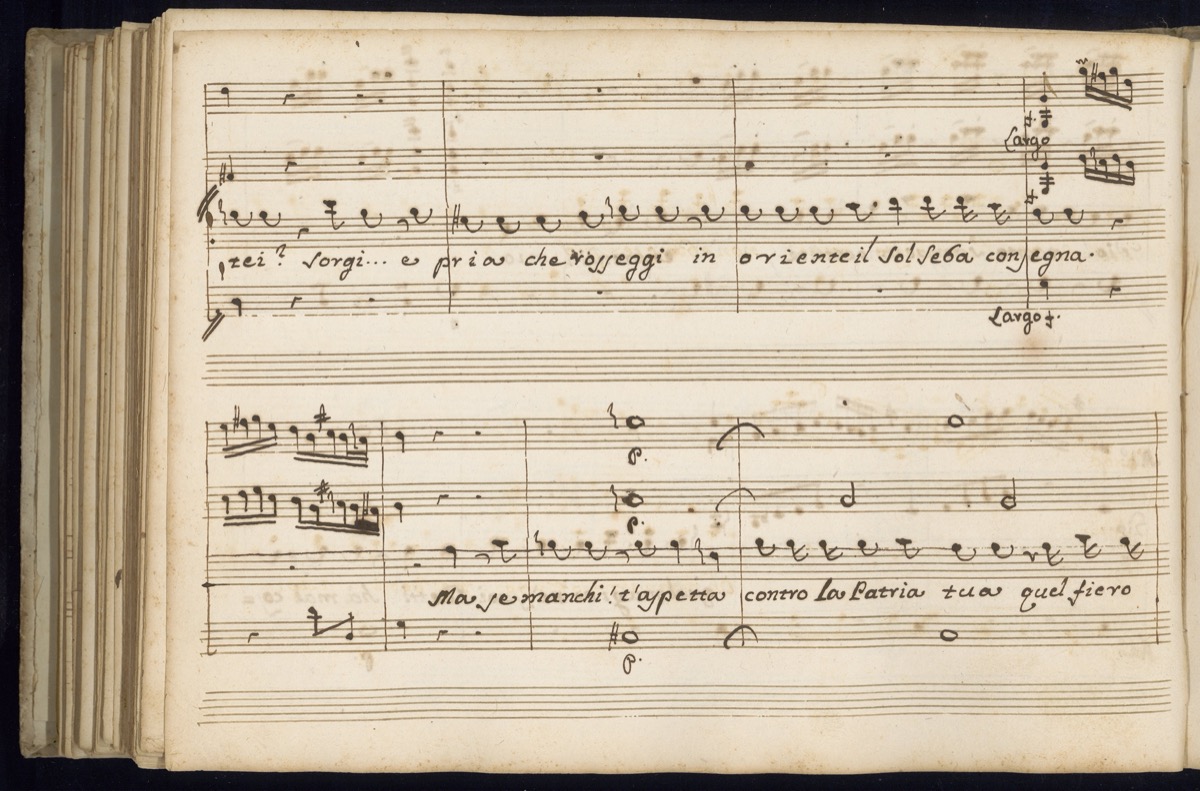 Largo
tei? Sorgi... e pria che rosseggi in oriente il sol Seba consegna.
Largo f.
p.
p.
Ma se manchi! t'aspetta contro la Patria tua quel fiero
p.